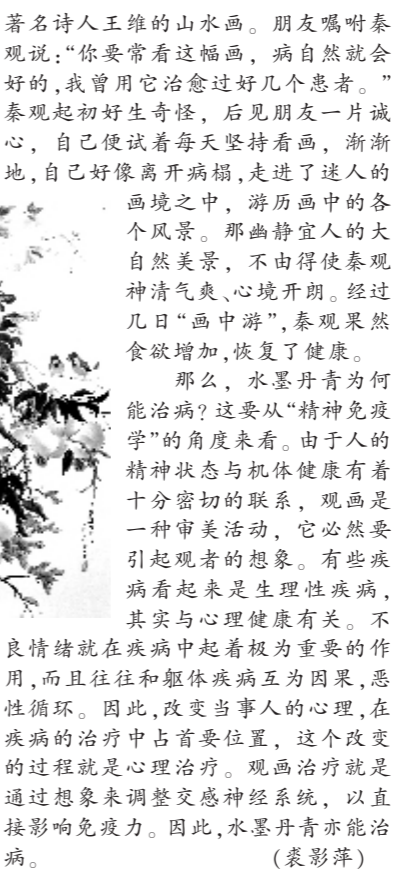 著名诗人王维的山水画。朋友嘱咐秦
观说：“你要常看这幅画，病自然就会
好的，我曾用它治愈过好几个患者。”
秦观起初好生奇怪，后见朋友一片诚
心，自己便试着每天坚持看画，渐渐
地，自己好像离开病榻，走进了迷人的
画境之中，游历画中的各
个风景。那幽静宜人的大
自然美景，不由得使秦观
神清气爽、心境开朗。经过
几日“画中游”，秦观果然
食欲增加，恢复了健康。
那么，水墨丹青为何
能治病？这要从“精神免疫
学”的角度来看。由于人的
精神状态与机体健康有着
十分密切的联系，观画是
一种审美活动，它必然要
引起观者的想象。有些疾
病看起来是生理性疾病，
其实与心理健康有关。不
良情绪就在疾病中起着极为重要的作
用，而且往往和躯体疾病互为因果，恶
性循环。因此，改变当事人的心理，在
疾病的治疗中占首要位置，这个改变
的过程就是心理治疗。观画治疗就是
通过想象来调整交感神经系统，以直
接影响免疫力。因此，水墨丹青亦能治
病。（裘影萍）